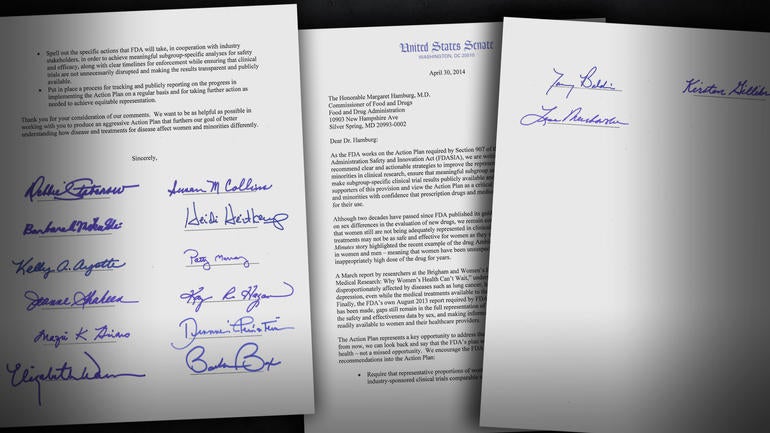 • Spell out the specific actions that FDA will take, in cooperation with industry
stakeholders, in order to achieve meaningful subgroup-specific analyses for safety
and efficacy, along with clear timelines for enforcement while ensuring that clinical
trials are not unnecessarily disrupted and making the results transparent and publicly
available.
• Put in place a process for tracking and publicly reporting on the progress in
implementing the Action Plan on a regular basis and for taking further action as
needed to achieve equitable representation.
Thank you for your consideration of our comments. We want to be as helpful as possible in
working with you to produce an aggressive Action Plan that furthers our goal of better
understanding how disease and treatments for disease affect women and minorities differently.
Sincerely,
Debbie Stabenow
Susan M Collins
Barbara A Mikulski
Heidi Heitkamp
Kelly A. Ayotte
Patty Murray
Jeanne Shaheen
Kay R. Hagan
Mazie K Hirono
Dianne Feinstein
Elizabeth Warren
Barbara Boxer
United States Senate
WASHINGTON, DC 20510
April 30, 2014
The Honorable Margaret Hamburg, M.D.
Commissioner of Food and Drugs
Food and Drug Administration
10903 New Hampshire Ave
Silver Spring, MD 20993-0002
Dear Dr. Hamburg:
As the FDA works on the Action Plan required by Section 907 of
Administration Safety and Innovation Act (FDASIA), we are
recommend clear and actionable strategies to improve the
minorities in clinical research, ensure that meaningful
make subgroup-specific clinical trial results publicly available
supporters of this provision and view the Action Plan as a critical
and minorities with confidence that prescription drugs and
for their use.
Although two decades have passed since FDA published its
on sex differences in the evaluation of new drugs, we remain
that women still are not being adequately represented in clinical
treatments may not be as safe and effective for women as they
Minutes story highlighted the recent example of the drug
in women and men – meaning that women have been
inappropriately high dose of the drug for years.
A March report by researchers at the Brigham and Women's
Medical Research: Why Women's Health Can't Wait,"
disproportionately affected by diseases such as lung cancer,
depression, even while the medical treatments available to
Finally, the FDA's own August 2013 report required by
has been made, gaps still remain in the full representation of
the safety and effectiveness data by sex, and making
readily available to women and their healthcare providers.
The Action Plan represents a key opportunity to address
from now, we can look back and say that the FDA's plan
health – not a missed opportunity. We encourage the FDA
recommendations into the Action Plan:
• Require that representative proportions of
industry-sponsored clinical trials comparable
Tammy Baldwin
Kirsten